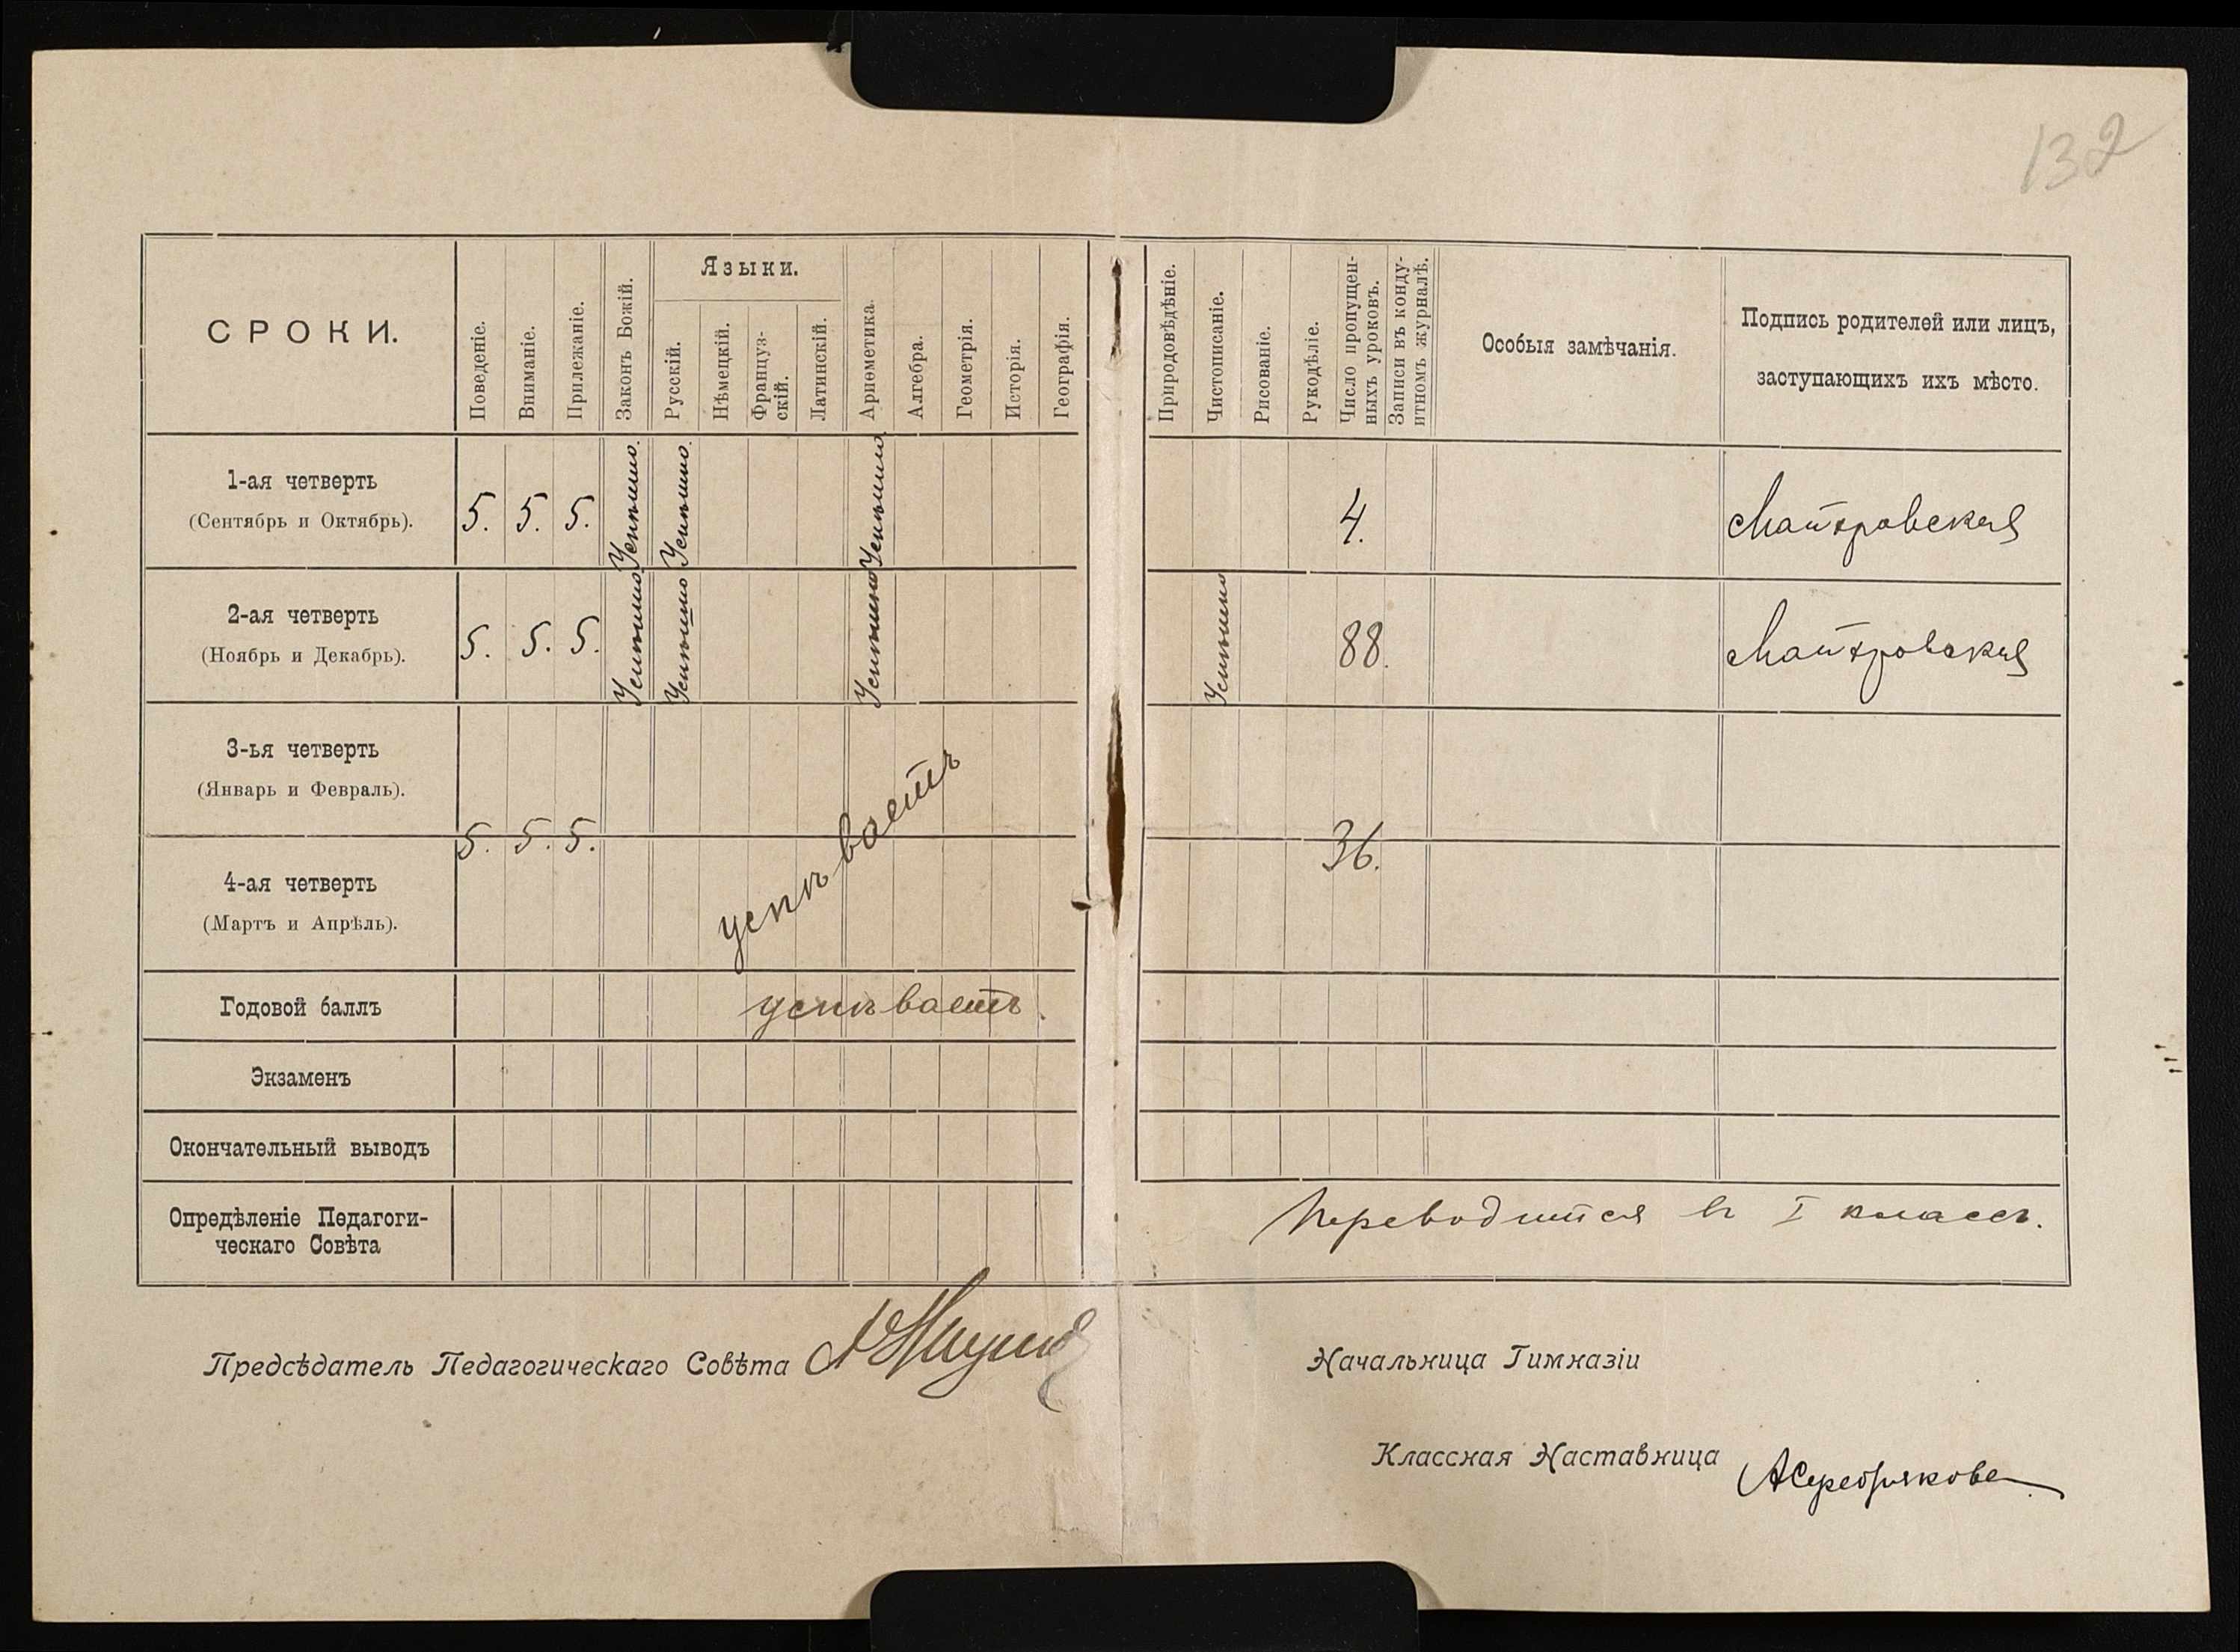 132
СРОКИ.
Поведенiе.
Вниманiе.
Прилежанiе.
Законъ Божiй.
Языки.
Русскiй.
Нѣмецкiй.
Француз-
скiй.
Латинскiй.
Ариѳметика.
Алгебра.
Геометрiя.
Исторiя.
Географiя.
Природовѣдѣнiе.
Чистописанiе.
Рисованiе.
Рукодѣлiе.
Число пропущен-
ныхъ уроковъ.
Записи въ конду-
итномъ журналѣ.
Особыя замѣчанiя.
Подпись родителей или лицъ,
заступающихъ ихъ мѣсто.
1-ая четверть
(Сентябрь и Октябрь).
5. 5. 5. Успѣшно. Успѣшно. Успѣшно. 4.
2-ая четверть
(Ноябрь и Декабрь).
5. 5. 5. Успѣшно Успѣшно Успѣшно Успѣшно 88.
3-ья четверть
(Январь и Февраль).
5. 5. 5. успѣваетъ 36.
4-ая четверть
(Мартъ и Апрѣль).
Годовой баллъ успѣваетъ.
Экзаменъ
Окончательный выводъ
Опредѣленiе Педагоги-
ческаго Совѣта
Переводится въ I классъ.
Предсѣдатель Педагогическаго Совѣта
Начальница Гимназiи
Классная Наставница АСеребрякова